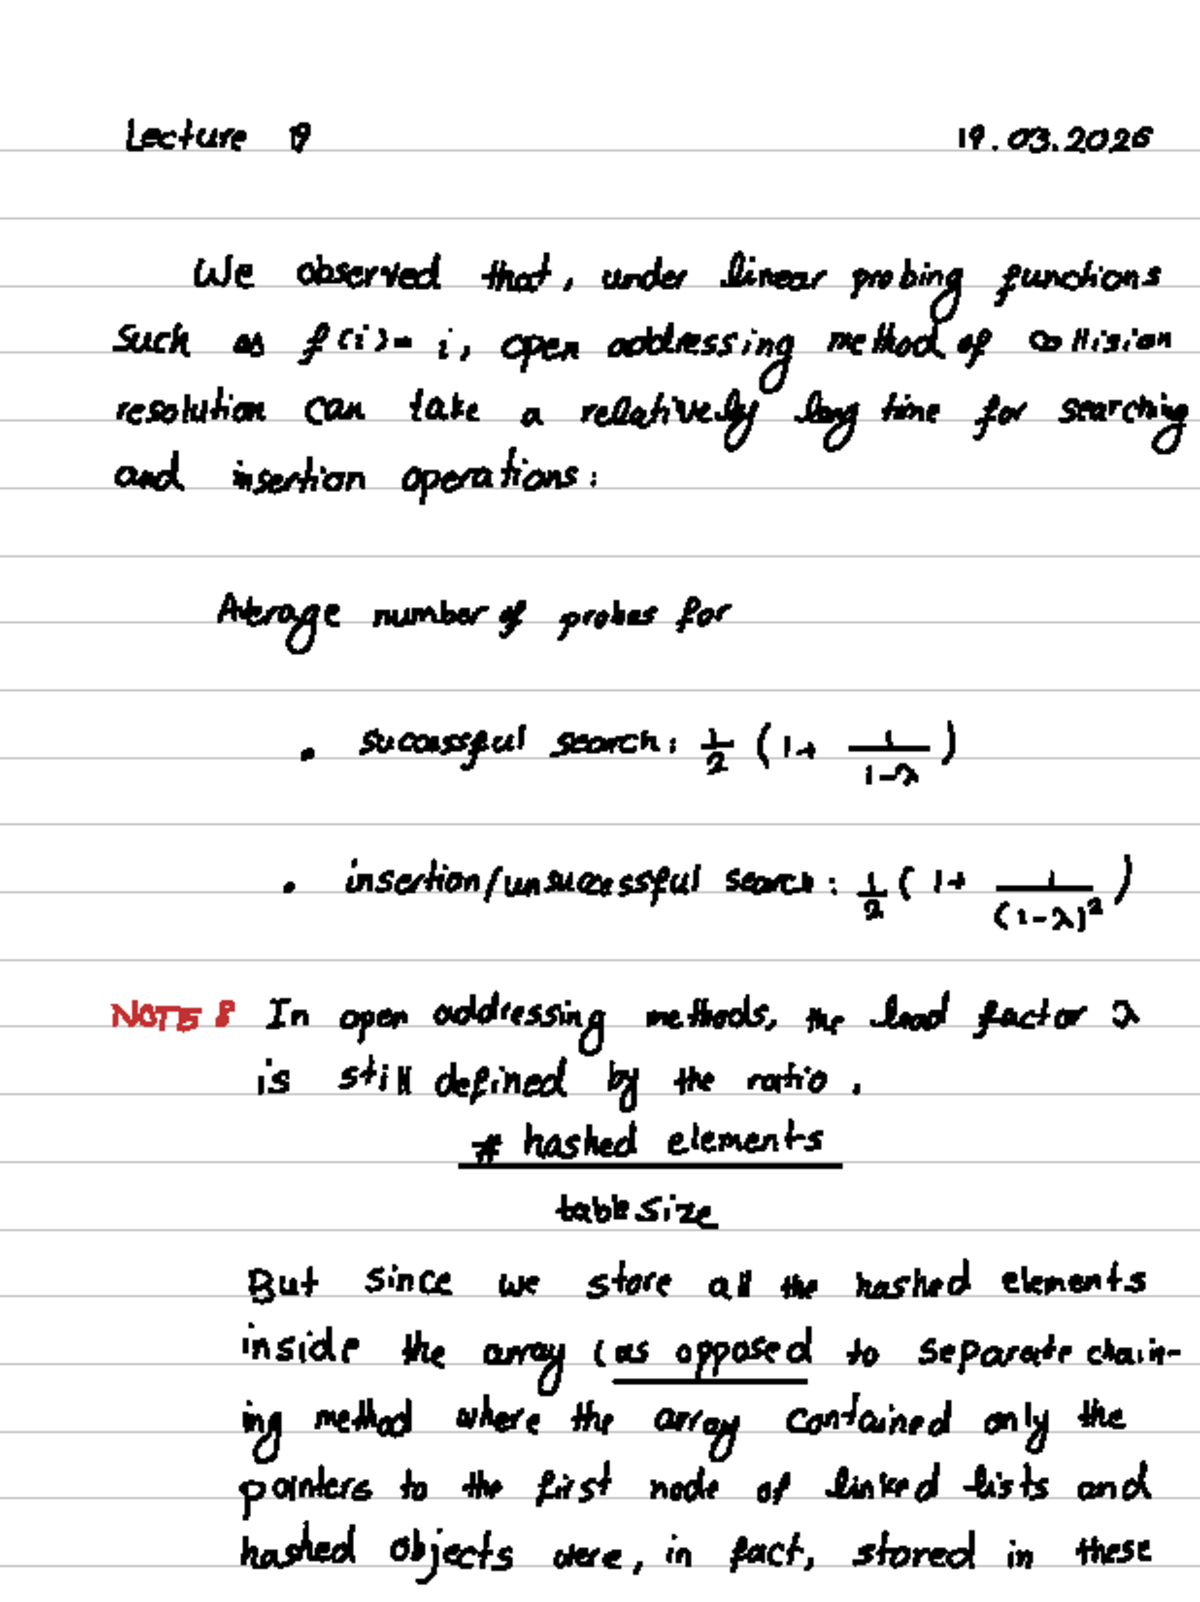 Lecture 19 19.03.2026
We observed that, under linear probing functions
such as f(i) = i, open addressing method of collision
resolution can take a relatively long time for searching
and insertion operations:
Average number of probes for
• successful search: 1/2 (1+ 1/(1-λ))
• insertion/unsuccessful search: 1/2 (1+ 1/(1-λ)²)
NOTE: In open addressing methods, the load factor λ
is still defined by the ratio.
# hashed elements
table size
But since we store all the hashed elements
inside the array (as opposed to separate chain-
ing method where the array contained only the
pointers to the first node of linked lists and
hashed objects were, in fact, stored in these